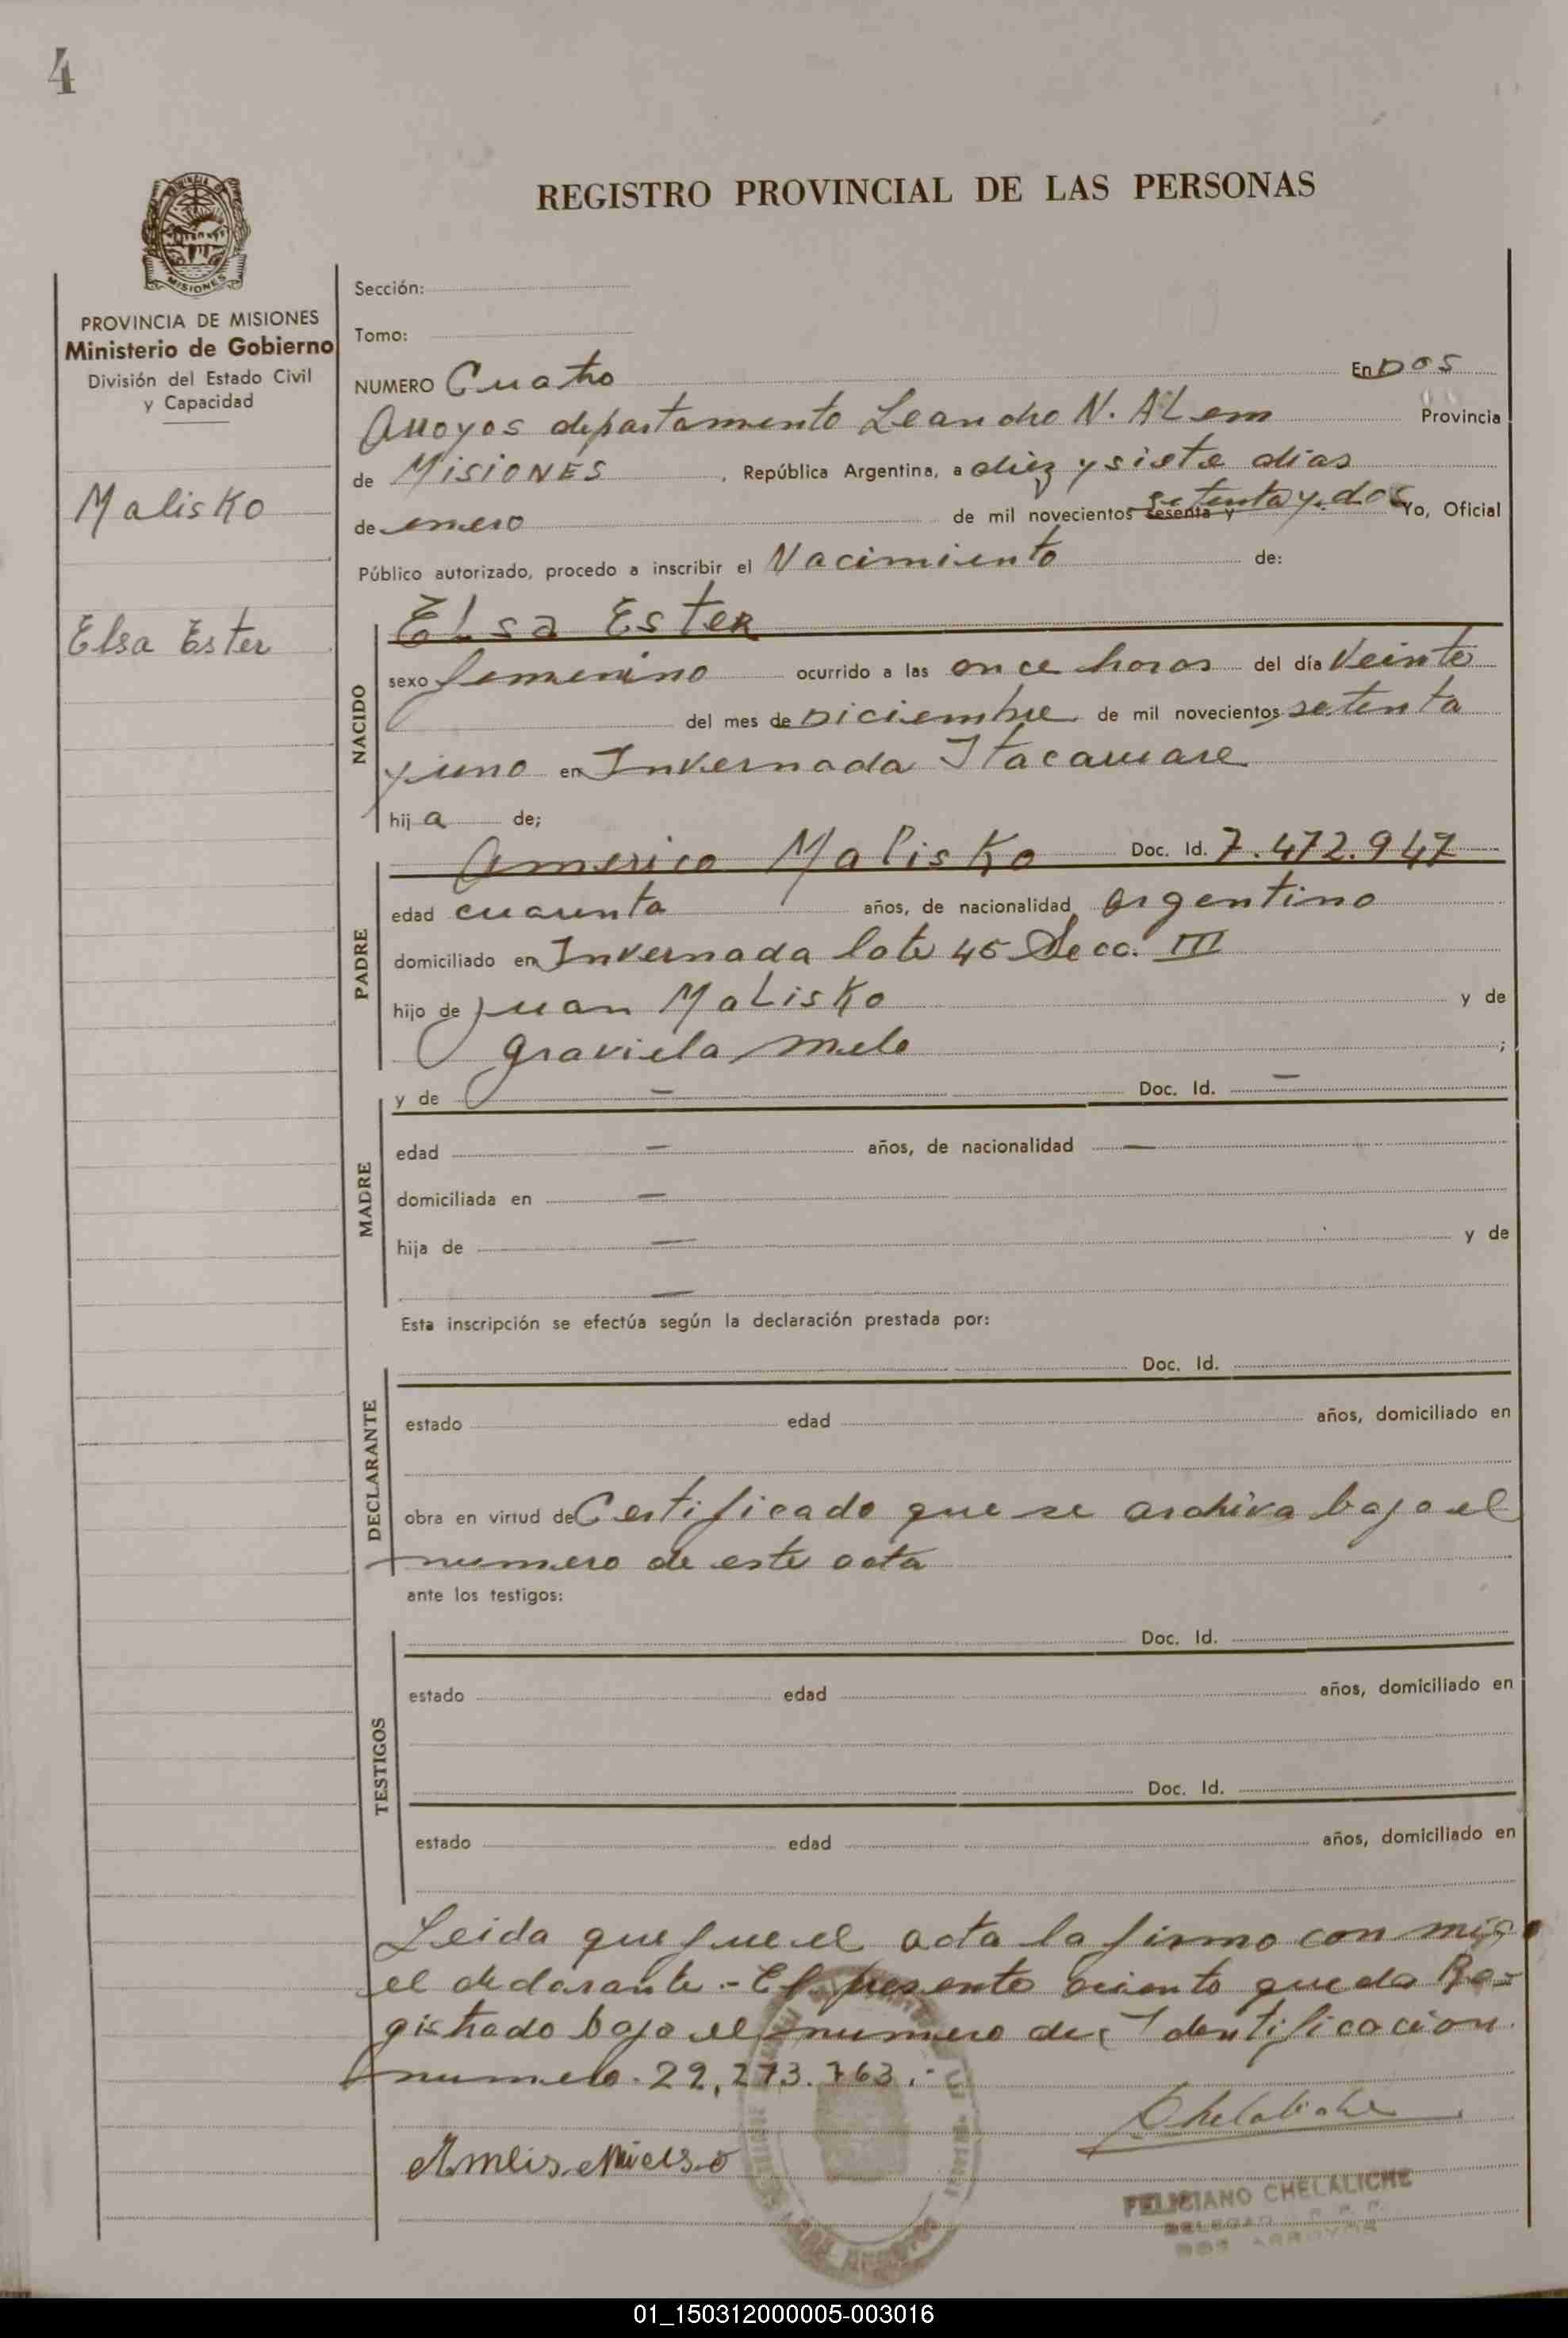 4
REGISTRO PROVINCIAL DE LAS PERSONAS
MISIONES
PROVINCIA DE MISIONES
Ministerio de Gobierno
División del Estado Civil
y Capacidad
Malisko
Elsa Ester
Sección:
Tomo:
NUMERO Cuatro En Dos
Arroyos departamento Leandro N. ALem Provincia
de MISIONES , República Argentina, a diez y siete dias
de enero de mil novecientos sesenta y setenta y dos Yo, Oficial
Público autorizado, procedo a inscribir el Nacimiento de:
NACIDO
ELsa Ester
sexo femenino ocurrido a las once horas del día Veinte
del mes de Diciembre de mil novecientos setenta
y uno en Invernada Itacaruare
hij a de;
PADRE
Americo Malisko Doc. Id. 7.472.947
edad cuarenta años, de nacionalidad argentino
domiciliado en Invernada lote 45 Secc. III
hijo de Juan MaLisko y de
graviela melo ;
MADRE
y de — Doc. Id. —
edad — años, de nacionalidad —
domiciliada en —
hija de — y de
—
Esta inscripción se efectúa según la declaración prestada por:
DECLARANTE
Doc. Id.
estado edad años, domiciliado en
obra en virtud de Certificado que se archiva bajo el
numero de este acta
ante los testigos:
TESTIGOS
Doc. Id.
estado edad años, domiciliado en
Doc. Id.
estado edad años, domiciliado en
Leida que fue el acta la firmo con migo
el declarante.- El presente asiento queda Re-
gistrado bajo el numero de Identificacion
numero. 22,273.763.-
Chelaliche
FELICIANO CHELALICHE
DOS ARROYOS
01_150312000005-003016